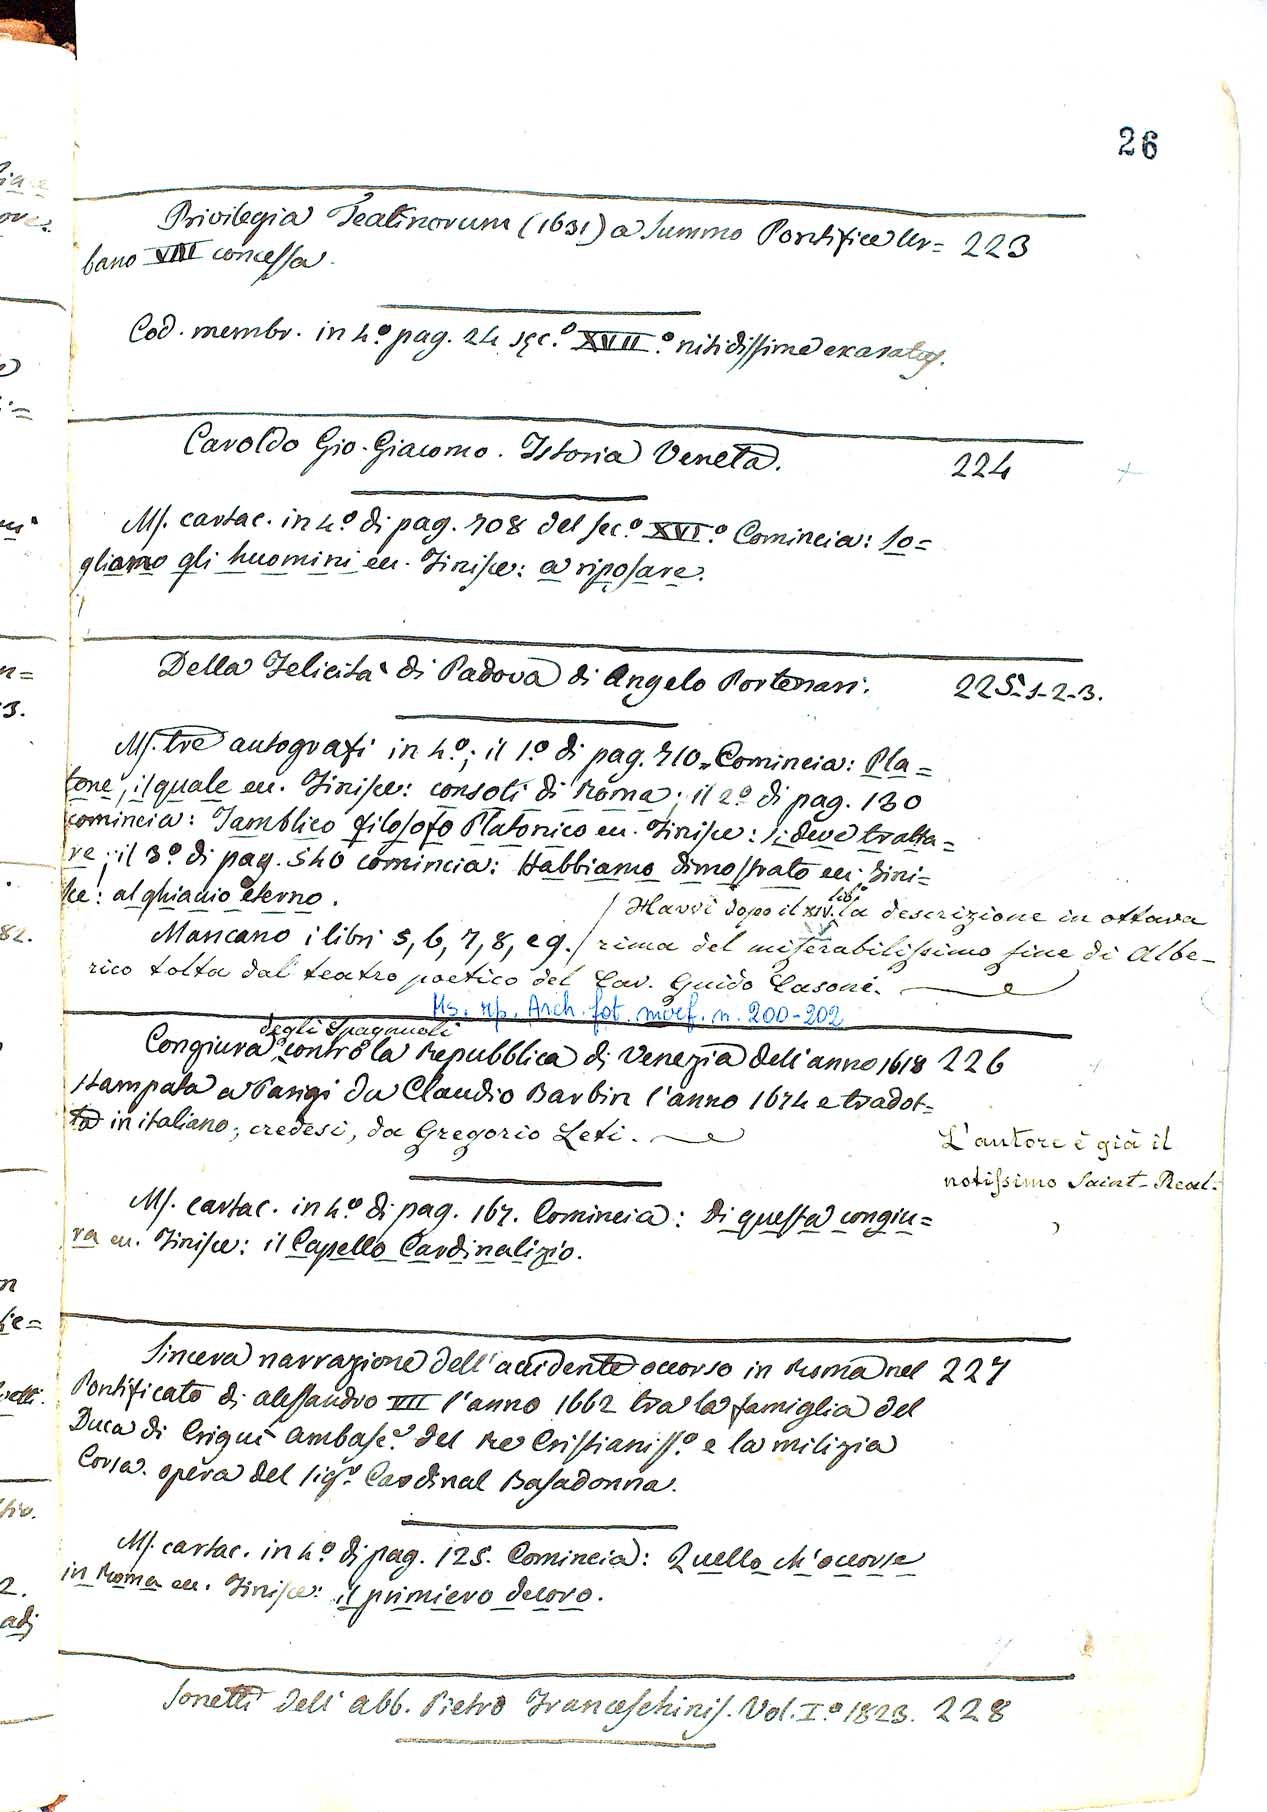 26
Privilegia Teatinorum (1631) a Summo Pontifice Ur= 223
bano VIII concessa.
Cod. membr. in 4.º pag. 24 sęc.º XVII.º nitidissime exaratus.
Caroldo Gio. Giacomo. Istoria Veneta. 224
Ms. cartac. in 4.º di pag. 708 del sec.º XVI.º Comincia: So=
gliamo gli huomini ec. Finisce: a riposare.
Della Felicità di Padova di Angelo Portenari. 225-1-2-3.
Ms. tre autografi in 4.º; il 1.º di pag. 710. Comincia: Pla=
tone, il quale ec. Finisce: consoli di Roma; il 2.º di pag. 130
comincia: Iamblico filosofo Platonico ec. Finisce: si deve tratta=
re; il 3.º di pag. 540 comincia: Habbiamo dimostrato ec. Fini=
sce: al ghiacio eterno.
Mancano i libri 5, 6, 7, 8, e 9. / Havvi dopo il XIV. libº la descrizione in ottava
rima del miserabilissimo fine di Albe-
rico tolta dal teatro poetico del Cav. Guido Casoni.
Ms. rip. Arch. fot. micf. n. 200-202
Congiura degli Spagnuoli contro la Repubblica di Venezia dell'anno 1618 226
stampata a Parigi da Claudio Barbin l'anno 1674 e tradot=
ta in italiano, credesi, da Gregorio Leti.
L'autore è già il
notissimo Saint-Real.
Ms. cartac. in 4.º di pag. 167. Comincia: Di questa congiu=
ra ec. Finisce: il Capello Cardinalizio.
Sincera narrazione dell'accidente occorso in Roma nel 227
Pontificato di Alessandro VII l'anno 1662 tra la famiglia del
Duca di Criquì Ambasc.r del Re Cristianiss.º e la milizia
Corsa. opera del Sig.r Cardinal Basadonna.
Ms. cartac. in 4.º di pag. 125. Comincia: Quello ch'occorse
in Roma ec. Finisce: il primiero decoro.
Sonetti dell'abb. Pietro Franceschinis. Vol. I.º 1823. 228